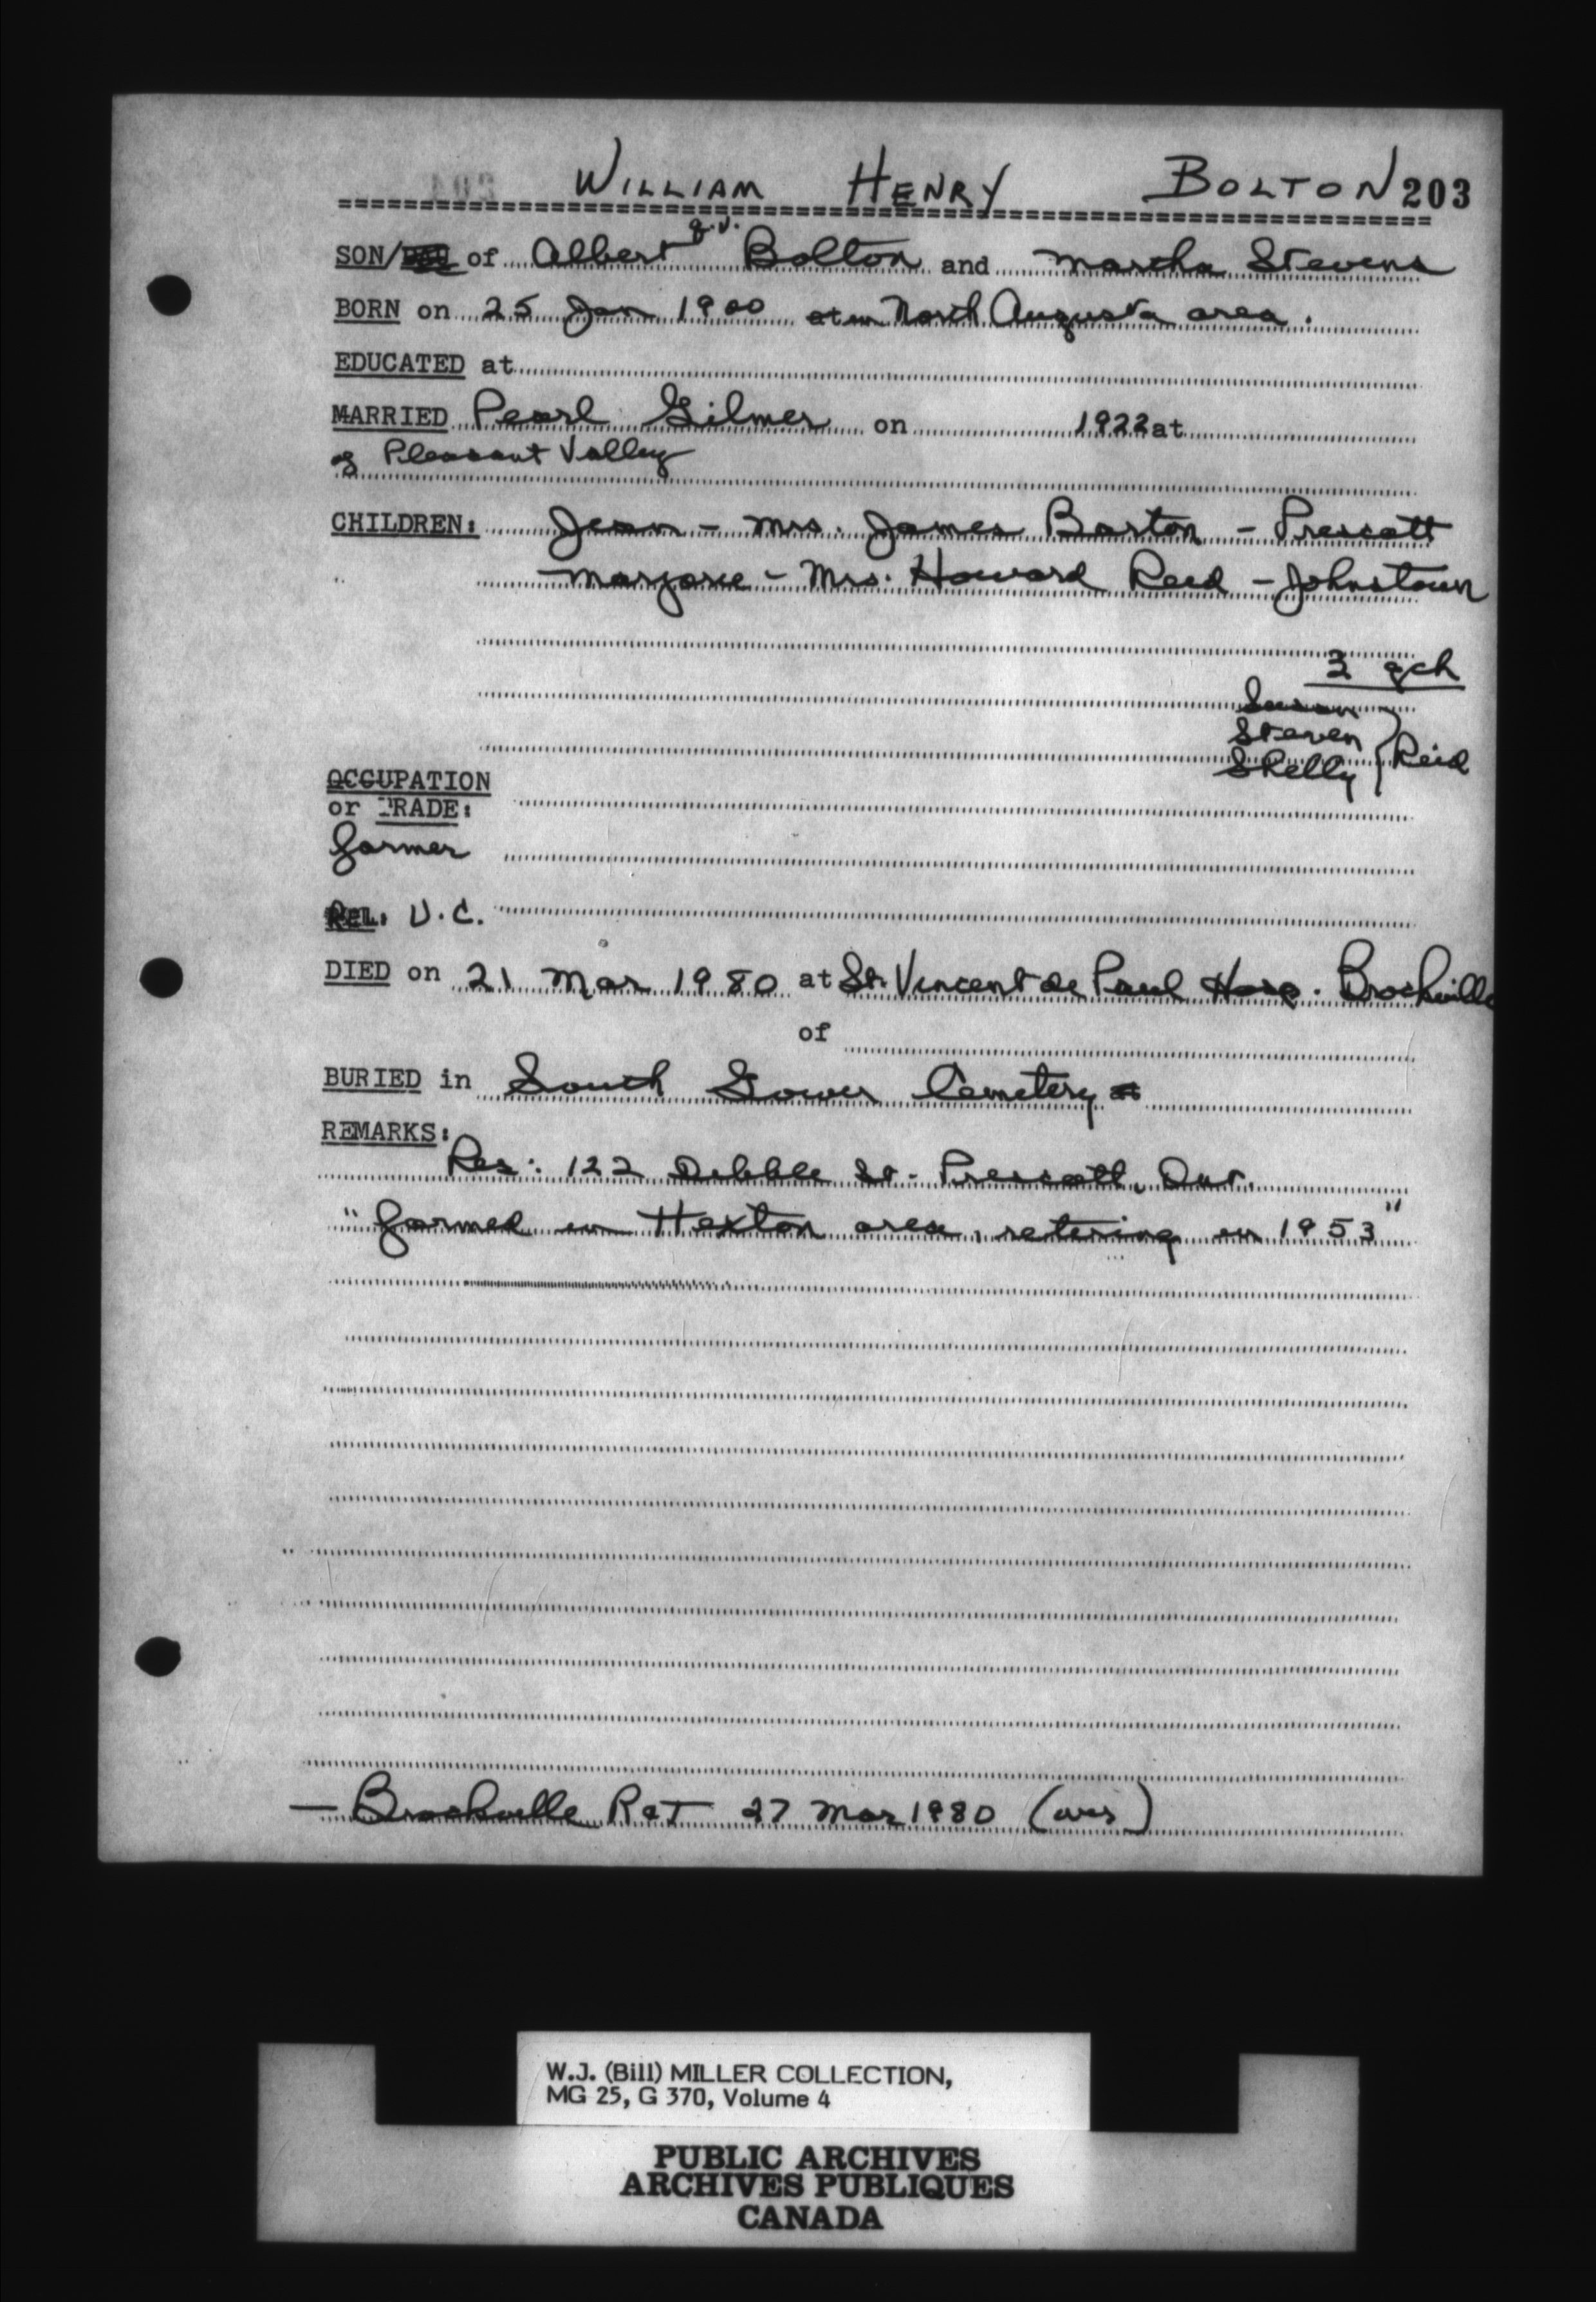 WILLIAM HENRY BOLTON 203
q.v.
SON/ of Albert Bolton and Martha Stevens
BORN on 25 Jan 1900 at in North Augusta area.
EDUCATED at
MARRIED Pearl Gilmer on 1922 at
of Pleasant Valley
CHILDREN: Jean - Mrs. James Barton - Prescott
Marjorie - Mrs. Howard Reid - Johnstown
3 gch
Susan
Steven
Shelly } Reid
OCCUPATION
or TRADE:
farmer
Rel: U.C.
DIED on 21 Mar 1980 at St. Vincent de Paul Hosp. Brockville
of
BURIED in South Gower Cemetery
REMARKS:
Res: 122 Dibble St. Prescott, Ont.
"farmed in Heckton area, retiring in 1953"
— Brockville R&T 27 Mar 1980 (avs)
W.J. (Bill) MILLER COLLECTION,
MG 25, G 370, Volume 4
PUBLIC ARCHIVES
ARCHIVES PUBLIQUES
CANADA